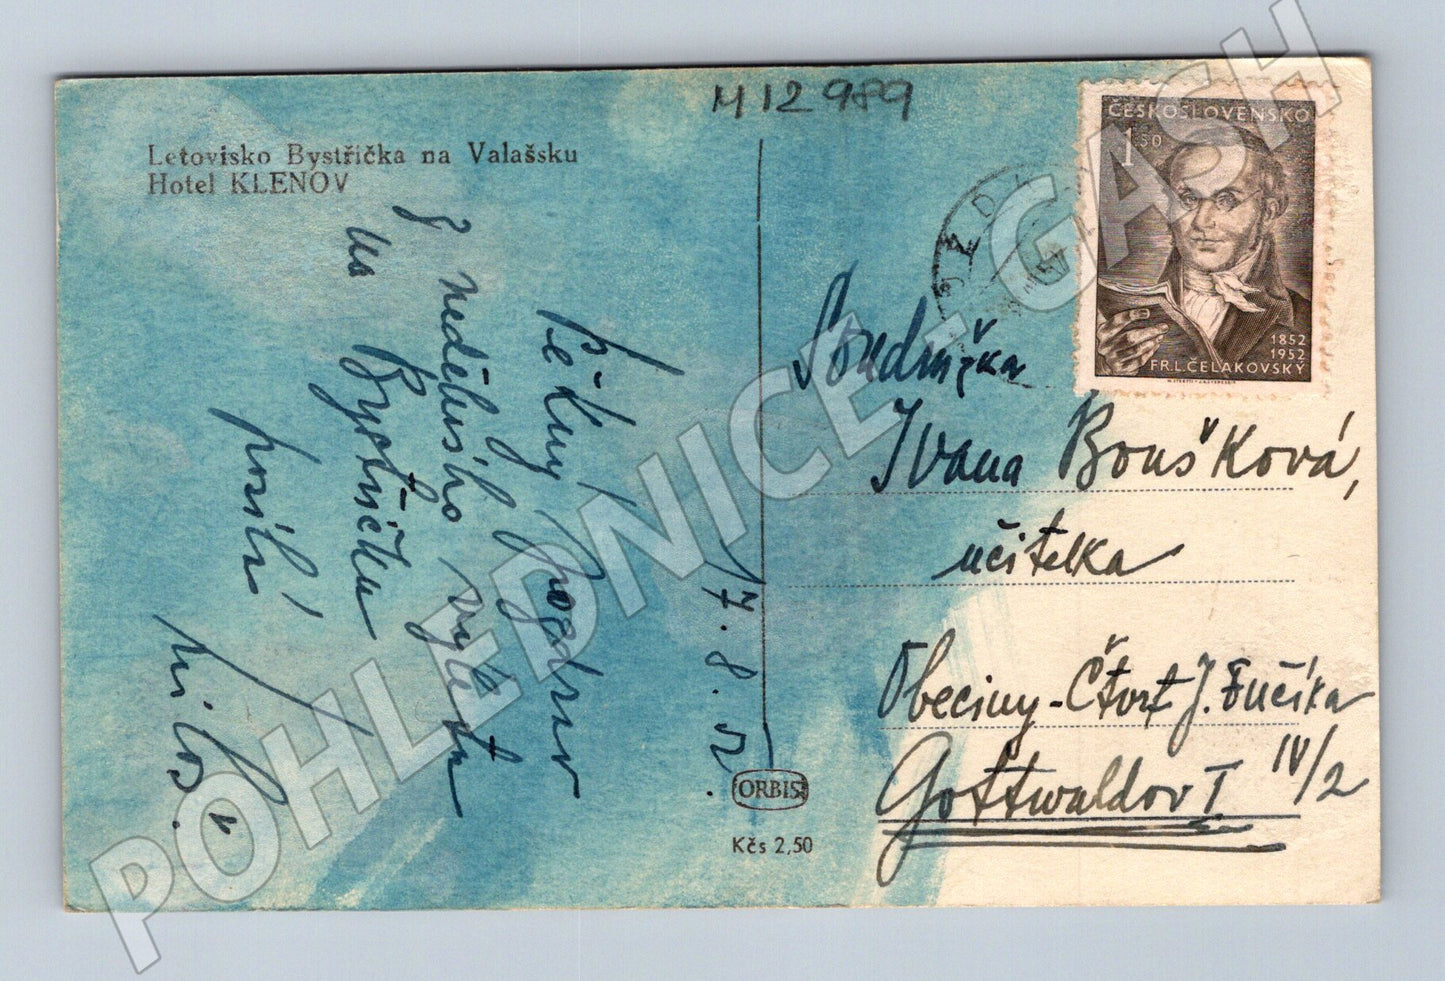 M 12 989
Letovisko Bystřička na Valašsku
Hotel KLENOV
Pěkný pozdrav
z nedělního výletu
na Bystřičku
posílá
17. 8. 52.
ČESKOSLOVENSKO
1 50
1852
1952
FR.L.ČELAKOVSKÝ
Soudružka
Ivana Boušková,
učitelka
Obeciny - Čtvrť J. Fučíka
IV/2
Gottwaldov I
ORBIS
Kčs 2,50
POHLEDNICE-GASH